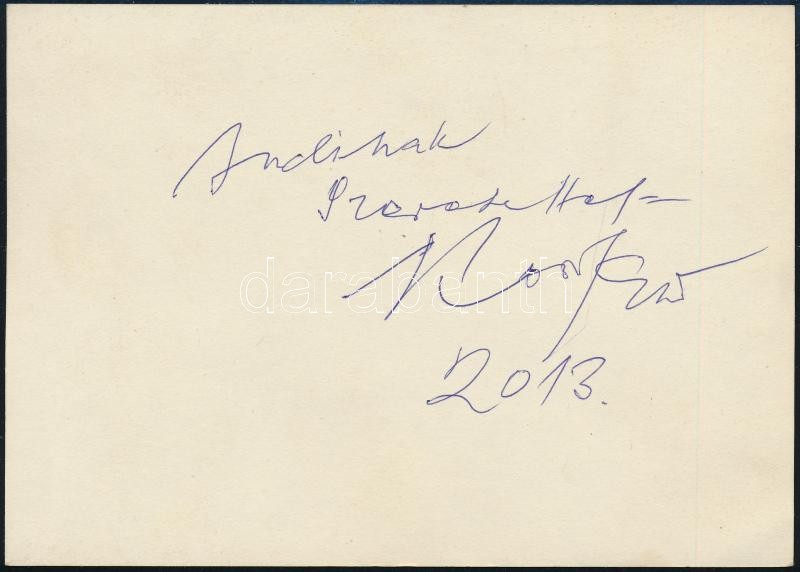 Andinak
Szeretettel=
darabanth
2013.